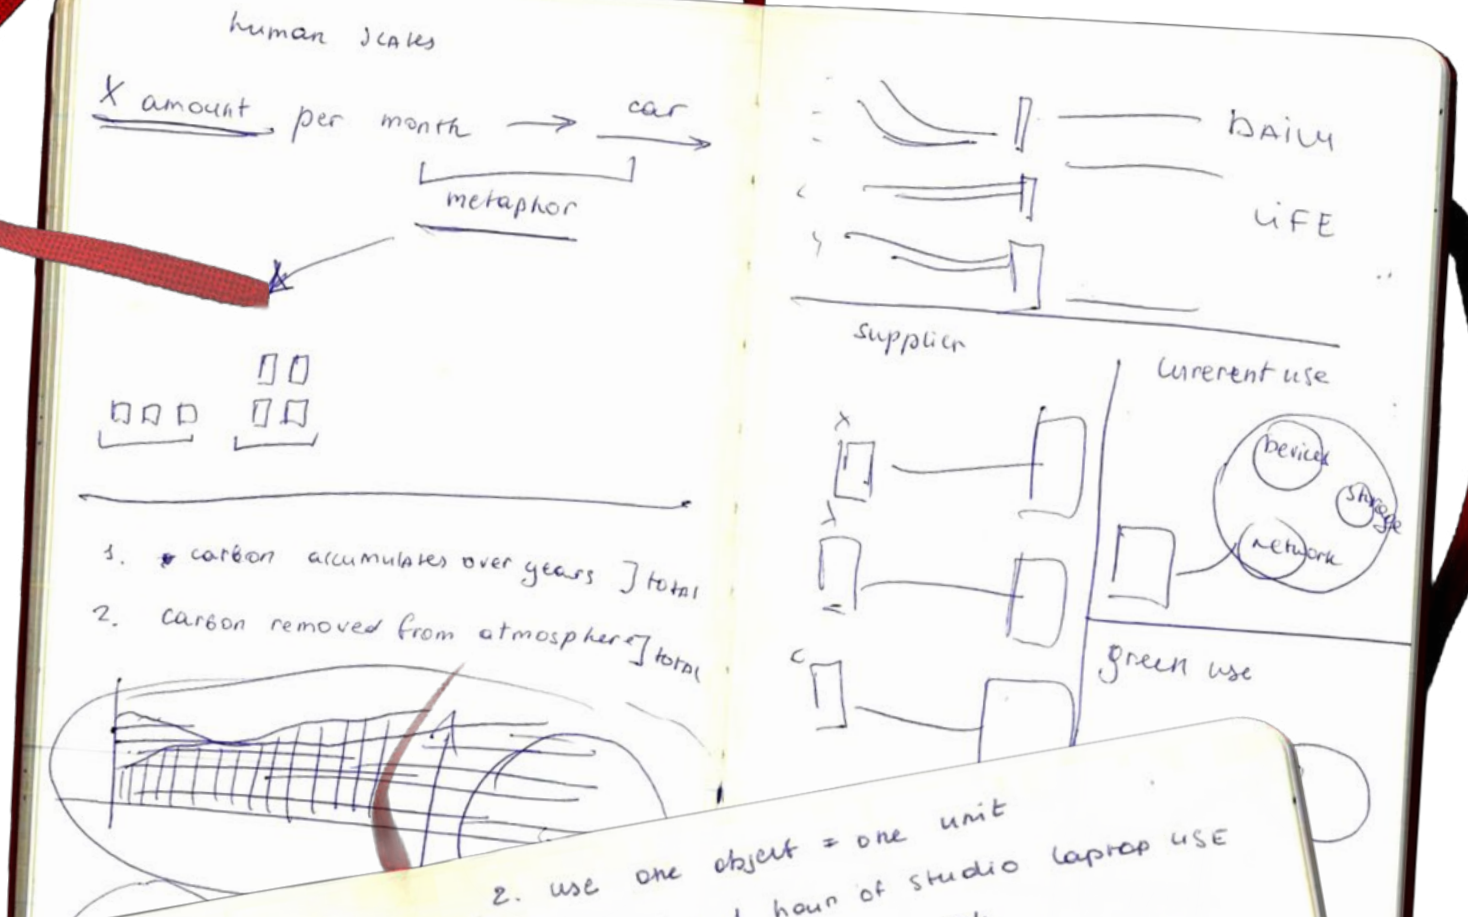 human scales
X amount per month → car
metaphor
1. carbon accumulates over years ] total
2. carbon removed from atmosphere ] total
DAILY
LIFE
supplier
curerent use
X
Devices
storage
network
C
green use
2. use one object = one unit
hour of studio laptop USE